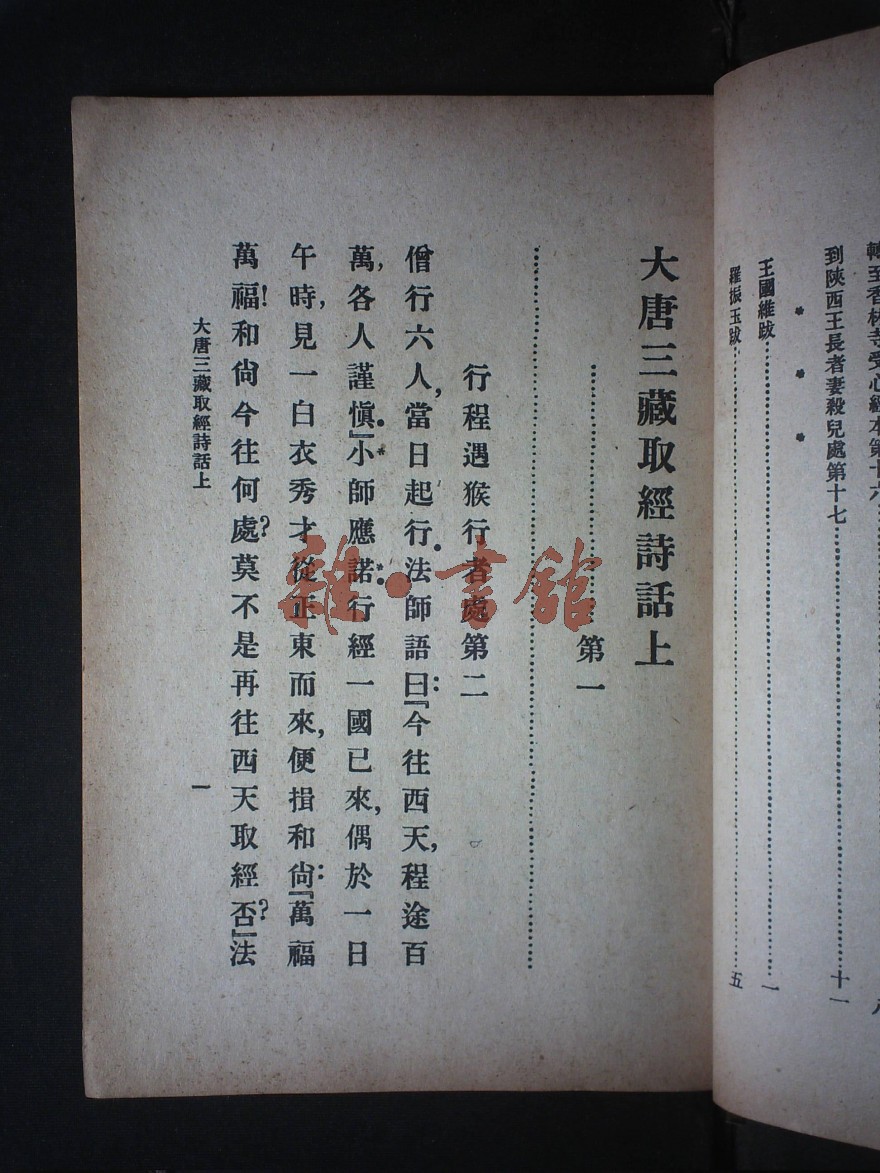 轉至香林寺受心經本第十六
到陝西王長者妻殺兒處第十七……十一
* * *
王國維跋……一
羅振玉跋……五
大唐三藏取經詩話上
……第一
……
行程遇猴行者處第二
僧行六人,當日起行.法師語曰:『今往西天,程途百
萬,各人謹慎.』小師應諾.行經一國已來,偶於一日
午時,見一白衣秀才從正東而來,便揖和尙:『萬福
萬福!和尙今往何處?莫不是再往西天取經否?』法
大唐三藏取經詩話上
一
雜·書館